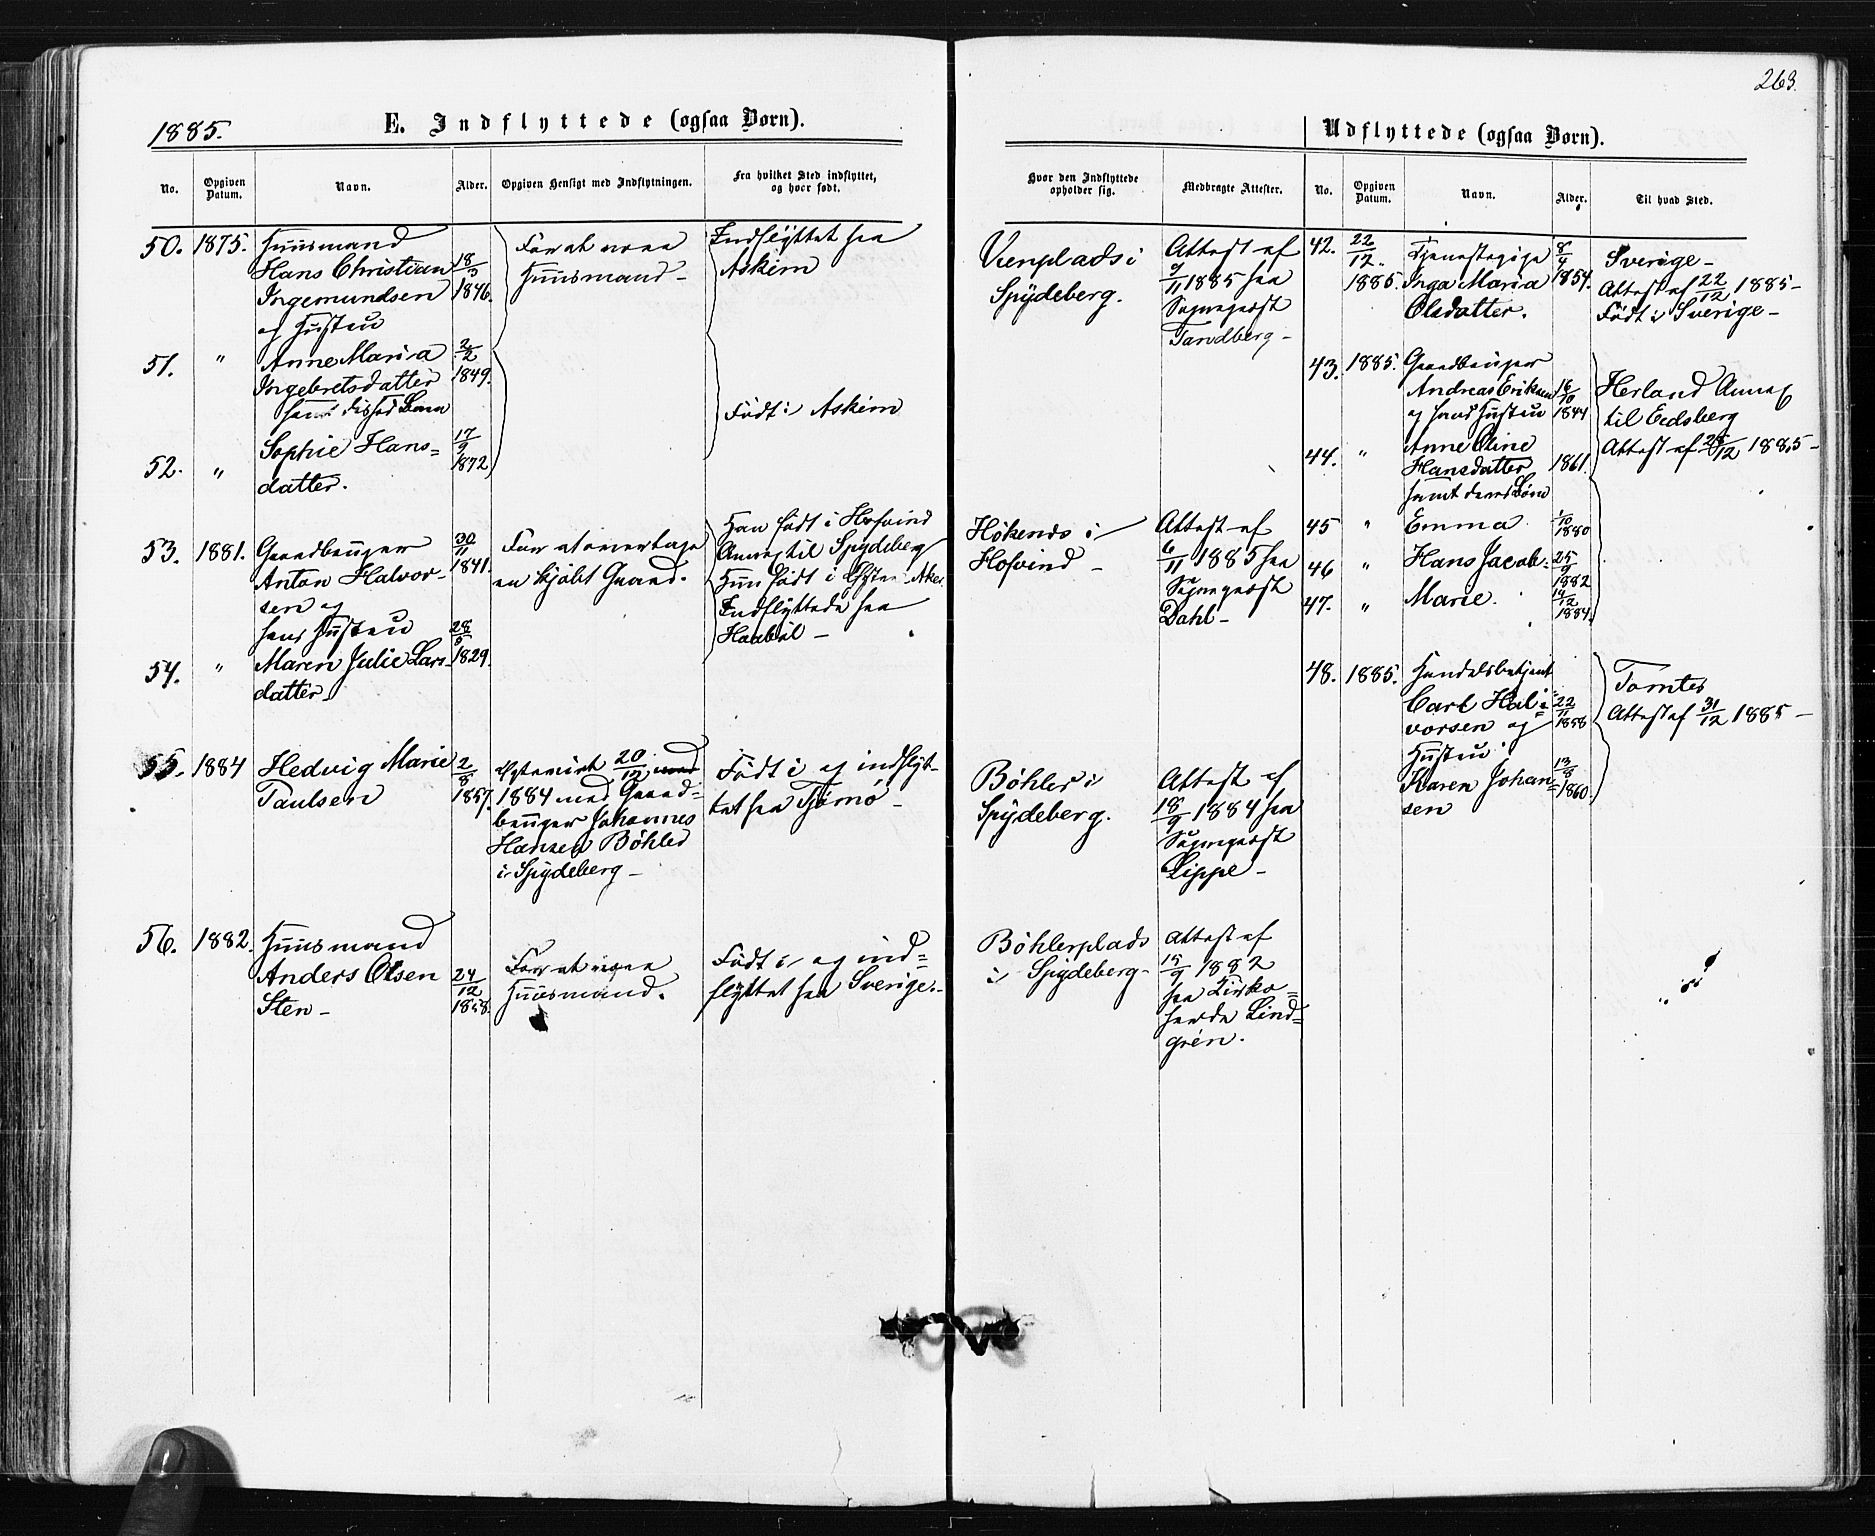 263.
1885.
E. Indflyttede (ogsaa Børn).
No.
Opgiven Datum.
Navn.
Alder.
Opgiven Hensigt med Indflytningen.
Fra hvilket Sted indflyttet, og hvor født.
50. 1875. Huusmand
Hans Christian
Ingemundsen
og Hustru
18/3 1846.
For at være
Huusmand –
Indflyttet fra
Askim
51. " Anne Maria
Ingebretsdatter
2/2 1849.
Født i Askim
52. " Sophie Hans=
datter.
17/9 1872
53. 1881. Gaardbruger
Anton Halvor-
sen og
hans Hustru
30/11 1841.
For at overtage
en kjøbt Gaard.
Han født i Hofvind
Annex til Spydeberg
Hun født i
Indflyttede fra
Haabøl –
54. " Maren Julie Lars-
datter
1829.
55. 1884 Hedvig Marie
Paulsen
1857.
20/12
1884 med Gaard=
bruger Johannes
Hansen Bøhler
i Spydeberg –
Født i og indflyt-
tet fra Tjømø –
56. 1882. Huusmand
Anders Olsen
Sten –
24/12 1858.
For at være
Huusmand.
Født i og ind=
flyttet fra Sverige. –
Hvor den Indflyttede opholder sig.
Medbragte Attester.
i
Spydeberg.
Attest af
1885 fra
Sogneprest
Tandberg –
Høkends i
Hofvind –
Attest af
6/11 1885 fra
Sogneprest
Dahl –
Bøhler i
Spydeberg.
Attest af
18/9 1884 fra
Sogneprest
Lippe –
Bøhlerplads
i Spydeberg –
Attest af
1882
fra Kirko=
herde Lind=
grén.
Udflyttede (ogsaa Børn).
No.
Opgiven Datum.
Navn.
Alder.
Til hvad Sted.
42. 22/12. 1885. Tjenestepige
Inga Maria
Olsdatter.
8/4 1854.
Sverige –
Attest af 22/12 1885 –
Født i Sverige –
43. 1885. Gaardbruger
Andreas Eriksen
og hans Hustru
16/10 1844
Herland Annex
til Eidsberg
Attest af 28/12 1885 –
44. " Anne Oline
Hansdatter
samt deres Børn
1861.
45 " Emma
1880
46 " Hans Jacob.
25/9 1882
47. " Marie.
1884.
48. 1885. Handelsbetjent
Carl Hal=
vorsen og
Hustru
22/11 1858
Karen Johan=
sen
13/8 1860.
Tomter
Attest af 31/12 1885 –